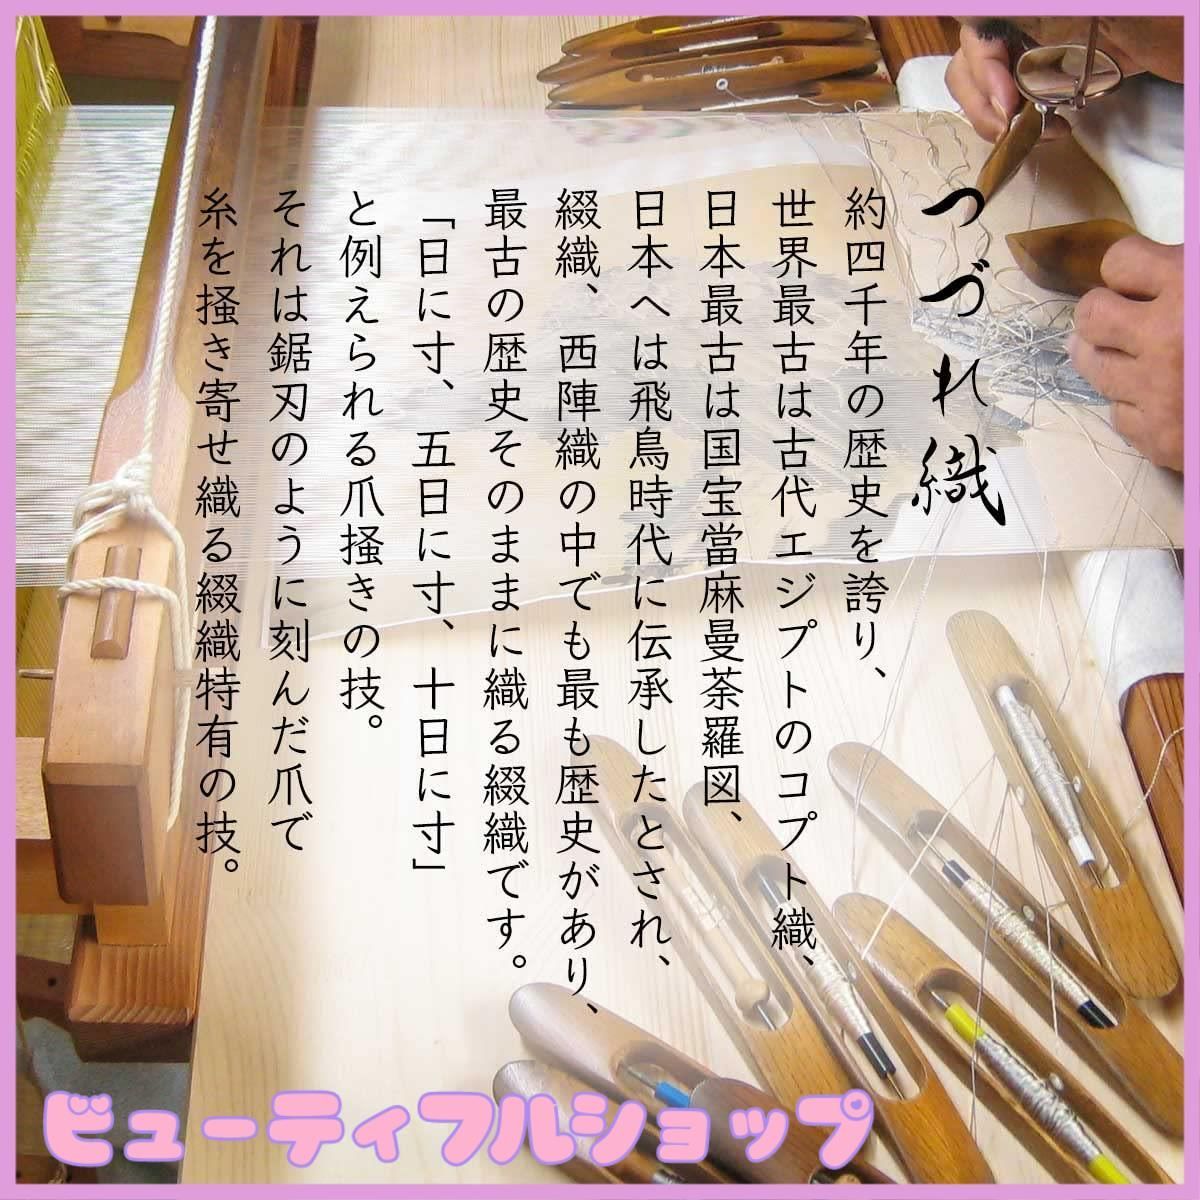 つづれ織
約四千年の歴史を誇り、
世界最古は古代エジプトのコプト織、
日本最古は国宝當麻曼荼羅図、
日本へは飛鳥時代に伝承したとされ、
綴織、西陣織の中でも最も歴史があり、
最古の歴史そのままに織る綴織です。
「日に寸、五日に寸、十日に寸」
と例えられる爪掻きの技。
それは鋸刃のように刻んだ爪で
糸を掻き寄せ織る綴織特有の技。
ビューティフルショップ